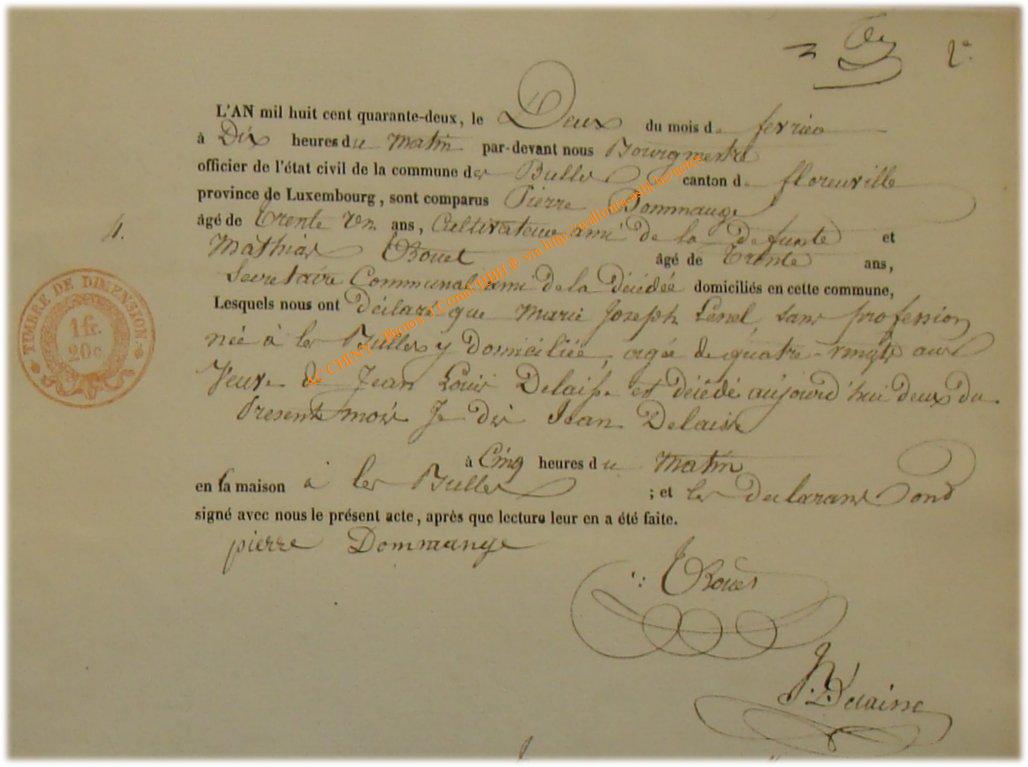 2e
L'AN mil huit cent quarante-deux, le Deux du mois d fevrier
à Dix heures du matin par-devant nous Bourgmestre
officier de l'état civil de la commune des Bulles canton de florenville
province de Luxembourg, sont comparus Pierre Dommange
âgé de trente un ans, Cultivateur ami de la defunte et
4. Mathias Rouet âgé de trente ans,
Secretaire Communal ami de la Décédée domiciliés en cette commune,
Lesquels nous ont déclaré que Marie Joseph Lenel, sans profession
née à les Bulles y domiciliée, agée de quatre-vingts ans
Veuve de Jean Louis Delaisse est décédé aujourd'hui deux du
Present mois Je dis Jean Delaisse
à Cinq heures du matin
en sa maison à les Bulles ; et les declarans ond
signé avec nous le présent acte, après que lecture leur en a été faite.
pierre Dommange
Rouet
TIMBRE DE DIMENSION.
1 fr.
20 c.